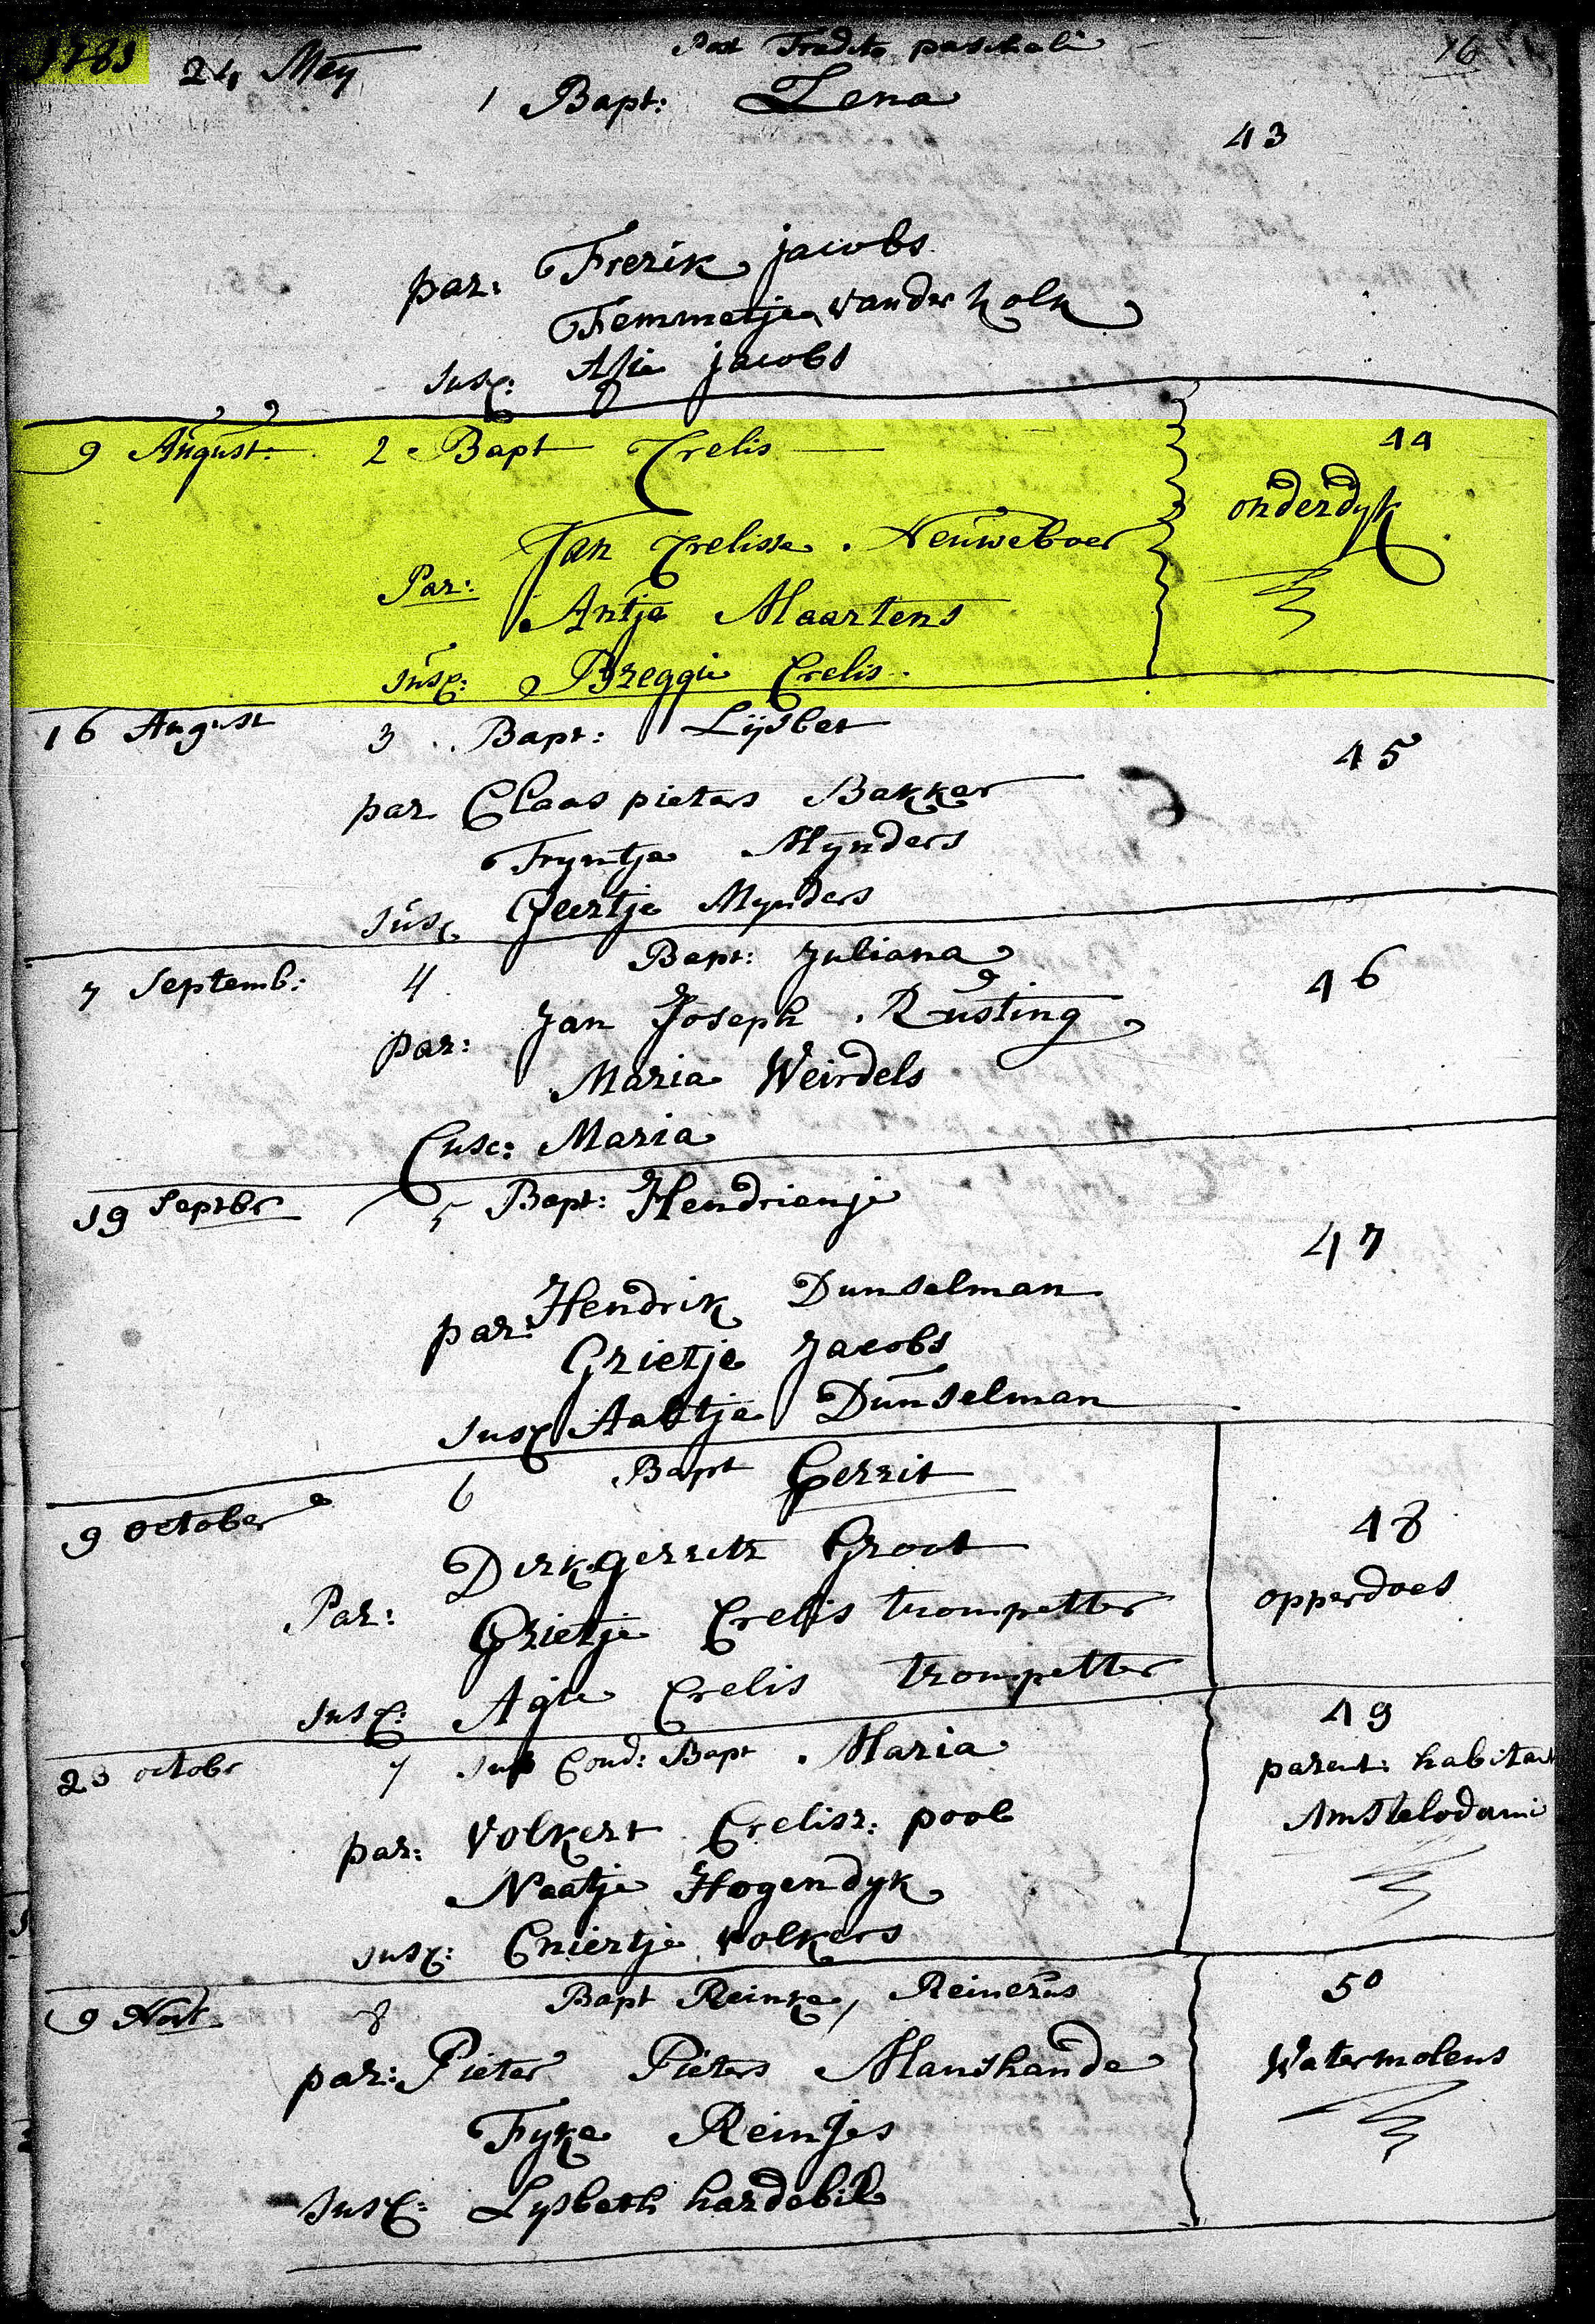 1781 24 Mey Post Tradito paschali 16
1 Bapt: Lena
43
par: Frerik jacobs
Femmetje vander kolk
Susc: Afie jacobs
9 August: 2 Bapt Crelis 44
onderdyk
Jan Crelisse Neuweboer
Par:
Antje Maartens
Susc: Breggie Crelis
16 August 3 Bapt: Lijsbet 45
par Claas pieters Bakker
Tryntje Mynders
Susc Geertje Mynders
7 Septemb: 4 Bapt: Juliana 46
par: Jan Joseph Rusting
Maria Weirdels
Susc: Maria
19 Septbr 5 Bapt: Hendrienje 47
par: Hendrik Dunselman
Grietje Jacobs
Susc Aaltje Dunselman
9 october 6 Bapt Gerrit 48
Dirk gerritz Groot opperdoes
Par: Grietje Crelis trompetter
Susc: Agie Crelis trompetter
49
23 octobr 7 Sub Cond: Bapt Maria parent: habitant
Amstelodami
par: Volkert Crelisz: pool
Naatje Hogendyk
Susc: Cniertje volkers
9 8 Bapt Reinke, Reinerus 50
par: Pieter Pieters Manshande Watermolens
Fyke Reinjes
Susc: Lysbeth hardebil